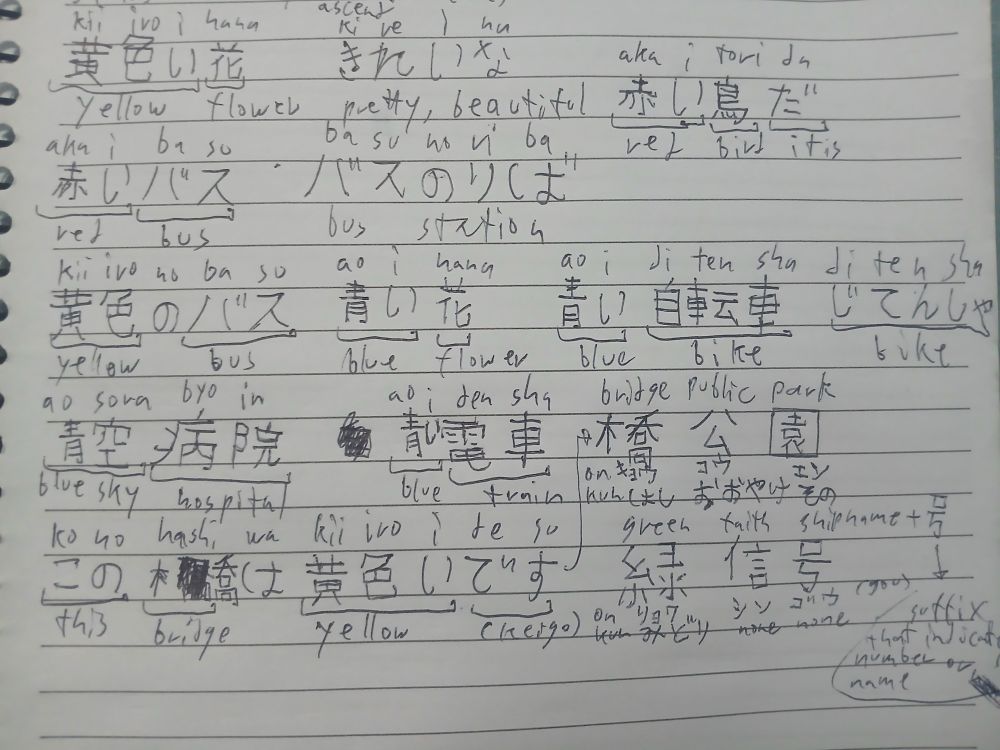 ascend
kii iro i hana ki re i na
黄色い花 きれいな aka i tori da
yellow flower pretty, beautiful 赤い鳥だ
aka i ba su ba su no ri ba red bird it is
赤いバス バスのりば
red bus bus station
kii iro no ba su ao i hana ao i ji ten sha ji ten sha
黄色のバス 青い花 青い自転車 じてんしゃ
yellow bus blue flower blue bike bike
ao sora byo in ao i den sha bridge public park
青空 病院 青い電車 橋 公 園
blue sky hospital blue train on キョウ コウ エン
kun はし おおやけ その
ko no hashi wa kii iro i de su green faith ship name + 号
この橋は黄色いです 緑 信 号 ↓
this bridge yellow (keigo) on リョク シン ゴウ (gou) suffix
kun みどり none none that indicates
number or
name